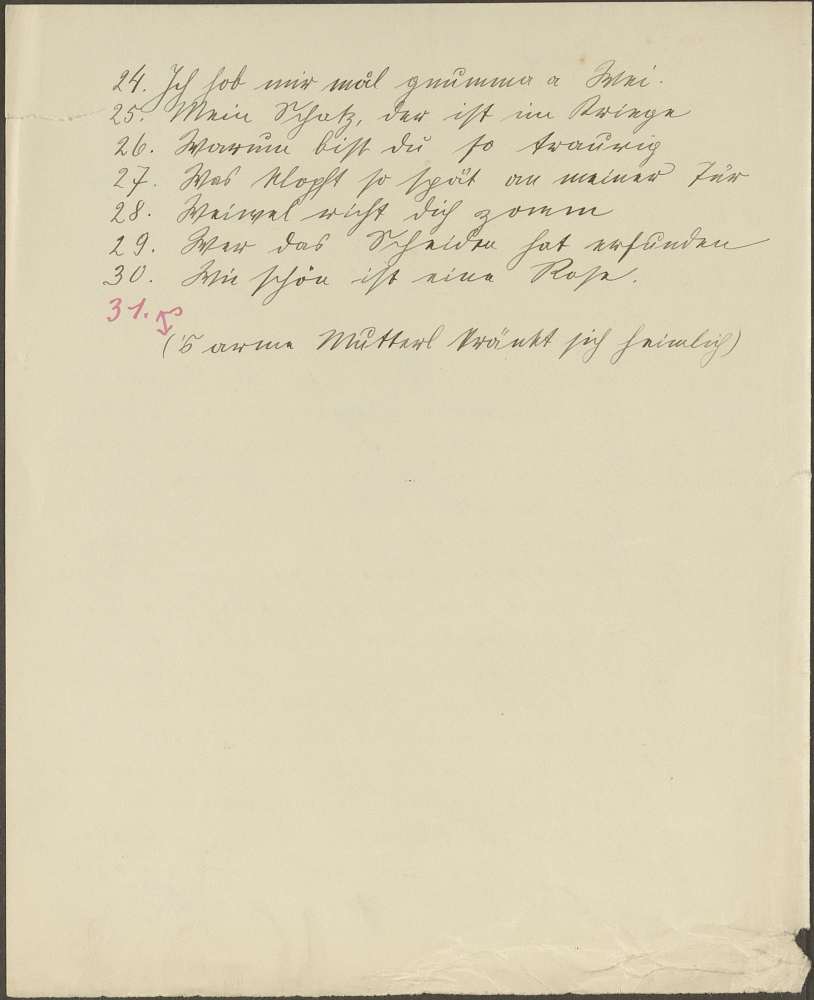 24. Ich hob mir mål gnumma a Wei.
25. Mein Schatz, der ist im Kriege
26. Warum bist du so traurig
27. Was klopft so spät an meiner Tür
28. Weiwel richt dich zomm
29. Wer das Scheiden hat erfunden
30. Wie schön ist eine Rose.
31.
('s arme Mutterl kränkt sich heimlich)